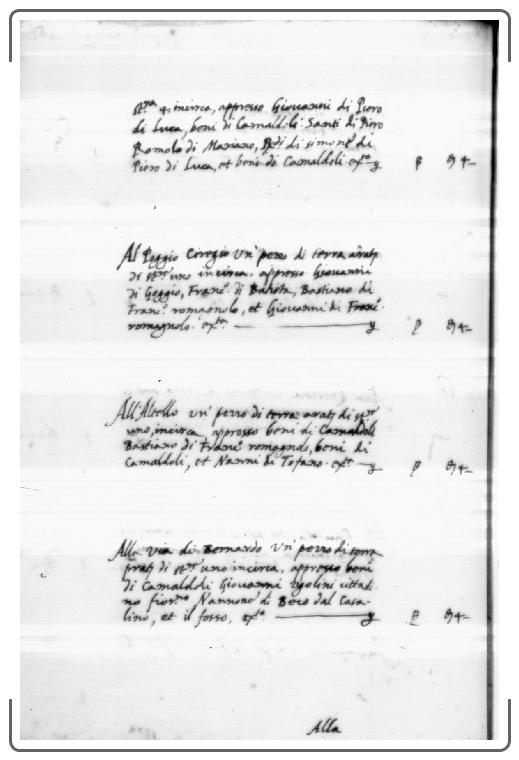 st.ra 4. incirca, appresso Giovanni di Piero
di Luca, beni di Camaldoli Santi di Piero
Romolo di Mariano, Redi di simone di
Piero di Luca, et beni di Camaldoli. etc.
Al Poggio Ciregio un' pezzo di terra arat.
di st.ra uno incirca, appresso Giovanni
di Goggio, Franc.o di Batista, Bastiano di
Franc.o romagnolo, et Giovanni di Franc.o
romagnolo. etc.
All'Altello un' pezzo di terra arat. di st.ra
uno, incirca, appresso beni di Camaldoli
Bastiano di Franc.o romagnolo, beni di
Camaldoli, et Nanni di Tofano. etc.
Alla via di Bernardo un' pezzo di terra
prat. di st.ra uno incirca, appresso beni
di Camaldoli Giovanni Ugolini cittadi-
no fior.no Nannone di Beco dal Casa-
lino, et il fosso, etc.
Alla